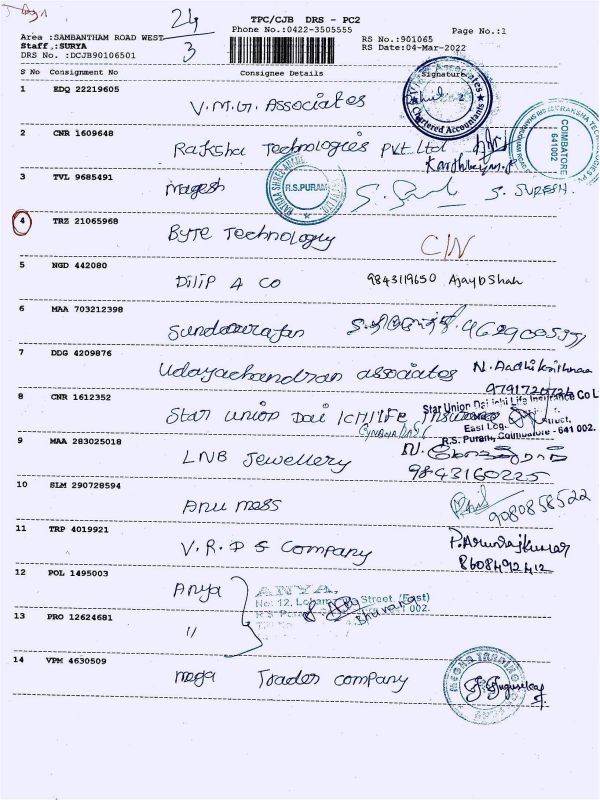 24
3
TPC/CJB DRS - PC2
Phone No.:0422-3505555
Page No.:1
Area :SAMBANTHAM ROAD WEST
RS No.:901065
Staff :SURYA
RS Date:04-Mar-2022
DRS No. :DCJB90106501
S No Consignment No Consignee Details Signature
1 EDQ 22219605 V.M.G. Associates
Chartered Accountants
2 CNR 1609648 Raksha Technologies Pvt Ltd
COIMBATORE
641002
3 TVL 9685491 Magesh
R.S.PURAM
S. SURESH
4 TRZ 21065968 Byte Technology C/N
5 NGD 442080 Dilip A Co 9843119650 Ajay D Shah
6 MAA 703212398 Sundarrajan
7 DDG 4209876 Udayachandran associates N. Aadhi Krithnaa
8 CNR 1612352 Star Union Dai Ichi Life Insurance
Star Union Dai ichi Life Insurance Co L
East Log.
R.S. Puram, Coimbatore - 641 002.
9 MAA 283025018 LNB Jewellery
9843160225
10 SLM 290728594 Anu mess
9080858522
11 TRP 4019921 V.R.D S Company P.Arunrajkumar
8608492412
12 POL 1495003 Anya
ANYA,
No: 12, Street, (East)
R.S. 002.
Bhavana
13 PRO 12624681 "
14 VPM 4630509 mega Trades company
MEGHA TRADING